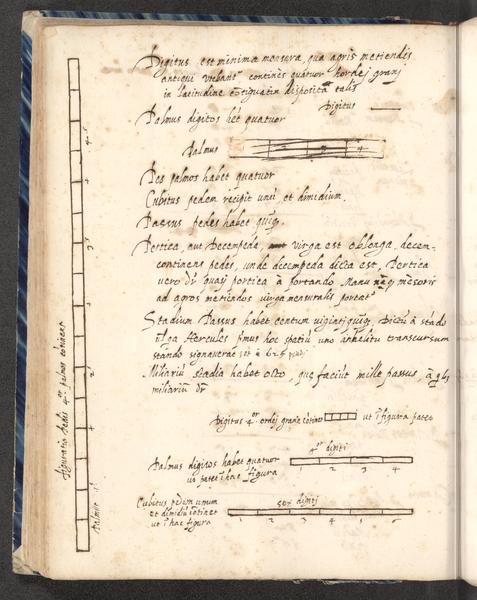 Digitus est minima mensura, qua agris metiendis
antiqui utebant' continēs quatuor hordej granj
in latitudine disposita talis
Digitus
Palmus digitos hēt quatuor
Palmus
Pes palmos habet quatuor
Cubitus pedem recipit unū et dimidium.
Passus pedes habet quīq.
Pertica, aut Decempeda, virga est oblonga, decem-
continens pedes, unde decempeda dicta est, Pertica
vero dr̄ quasj portica à portando. Manu mesoris
ad agros metiendos virga mensuralis
Stadium Passus habet centum viginti quīq. à stādo
Hercules pīmus hoc spatiū uno anhelitu transcursum
stando signaverat 625
Miliariū stadia habet octo, que faciūt mille passus, à
miliariū dr̄
Digitus 4or ordej grana cōtinet ut ī figura patet
4or digiti
Palmus digitos habet quatuor
ut patet ī hac figura
1 2 3 4
sex
Cubitus pedem unum
et dimidiū cōtinet
ut ī hac figura
1 2 3 4 5 6
figuratio pedis 4or palmos cōtinens
Palmus
4
3
2